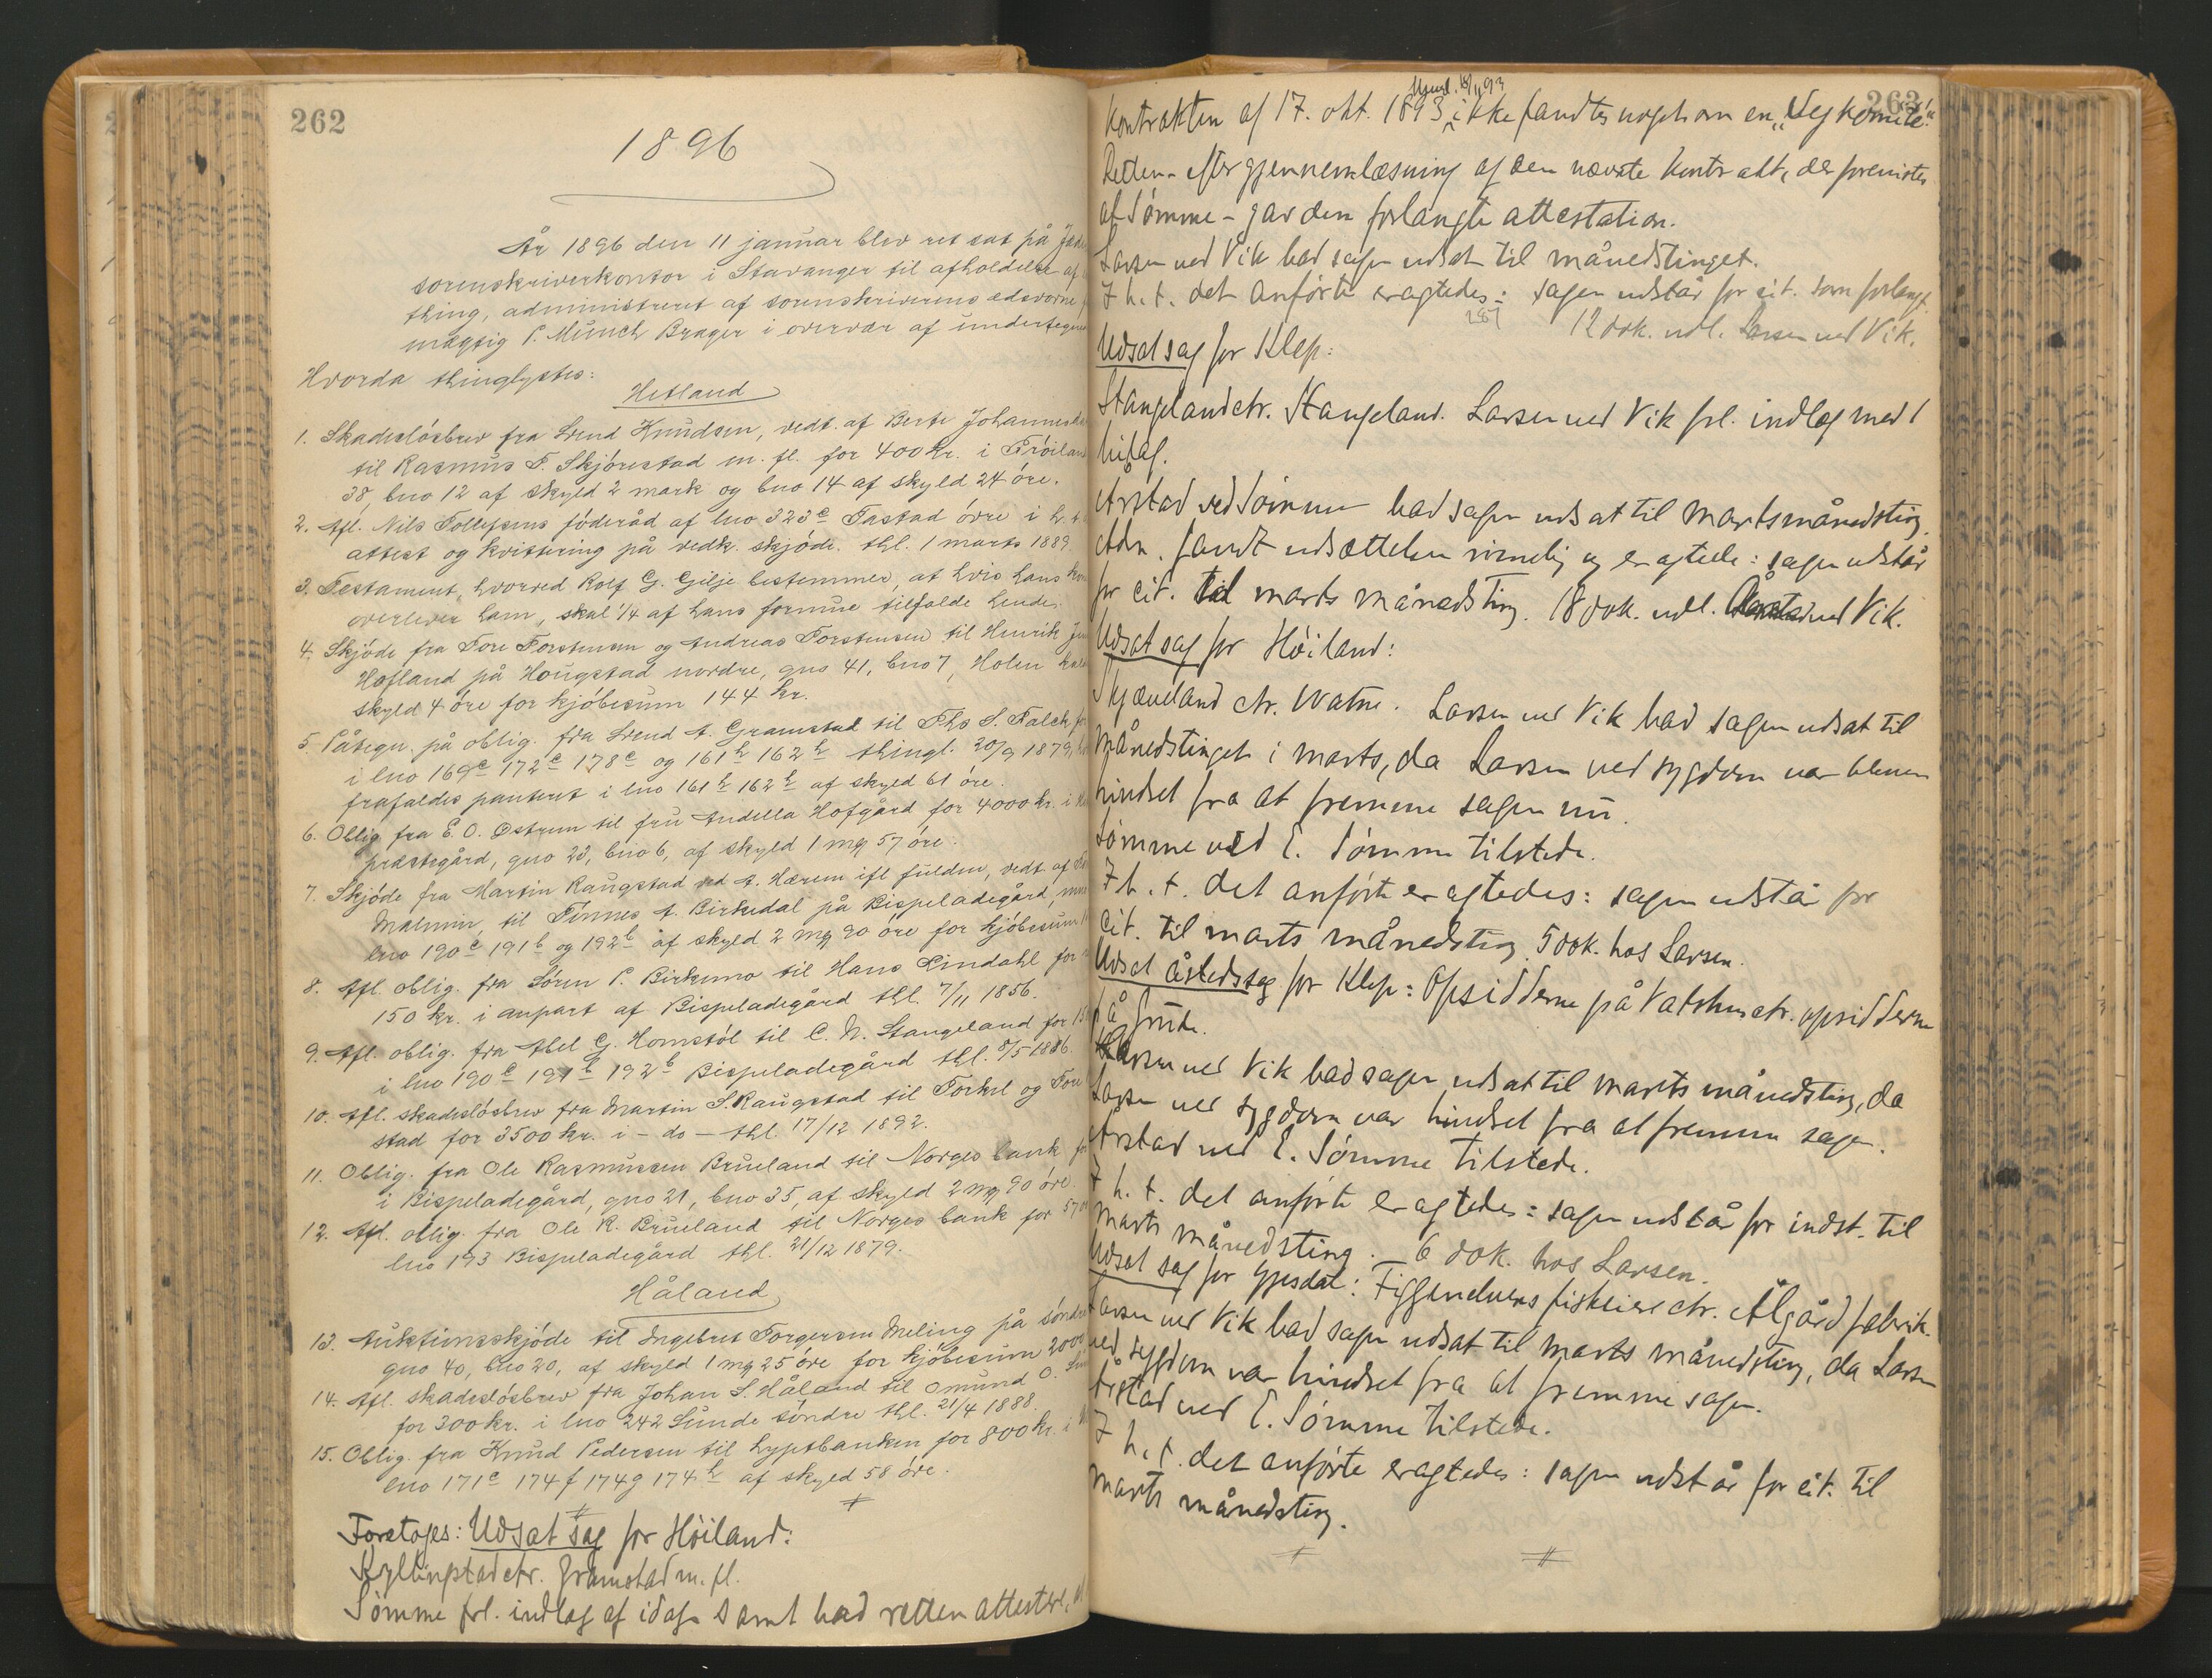 262
1896
År 1896 den 11 januar blev ret sat på
sorenskriverkontor i Stavanger til afholdelse af
thing, administreret af sorenskriverens edsvorne
mægtig P. Munch Brager i overvær af undertegn
Hvorda thinglystes:
Hetland
1. Skadeslösbrev fra Svend Knudsen, vedt. af Berte Johannes
til Rasmus T. Skjörestad m. fl. for 400 kr. i Fröiland
38, bno 12 af skyld 2 mark og bno 14 af skyld 24 öre.
2. Afl. Nils Tollefsens föderåd af lno 323c Tastad övre i h. t.
attest og kvittering på vedk. skjöde. thl. 1 marts 1889
3. Testament, hvorved Rolf G. Gilje bestemmer, at hvis hans
overlever ham, skal 1/4 af hans formue tilfalde hende.
4. Skjöde fra Tore Torstensen og Andreas Torstensen til Henrik
Hafland på Hougstad nordre, gno 41, bno 7, Holen
skyld 4 öre for kjöbesum 144 kr.
5. Påtegn. på oblig. fra Svend A. Gramstad til Ths S. Falck
i lno 169c 172c 178c og 161h 162h thingl. 20/9 1879,
frafaldes panteret i lno 161h 162h af skyld 61 öre.
6. Oblig. fra E. O. Östrem til fru Andella Hofgård for 4000 kr. i
præstegård, gno 23, bno 6, af skyld 1 mg 57 öre.
7. Skjöde fra Martin Raugstad ved A. Hærem ifl fuldm, vedt. af
Malmin, til Tönnes A. Birkedal på Bispeladegård,
lno 190c 191b og 192b af skyld 2 mg 90 öre for kjöbesum
8. Afl. oblig. fra Sören P. Birkemo til Hans Lindahl for
150 kr. i anpart af Bispeladegård thl. 7/11 1856.
9. Afl. oblig. fra Abel G. Homstöl til C. N. Stangeland for
i lno 190c 191b 192b Bispeladegård thl. 8/5 1886.
10. Afl. skadeslösbrev fra Martin S. Raugstad til Torkel og Tore
stad for 3500 kr. i - do - thl. 17/12 1892.
11. Oblig. fra Ole Rasmussen Brueland til Norges bank
i Bispeladegård, gno 21, bno 35, af skyld 2 mg 90 öre.
12. Afl. oblig. fra Ole R. Brueland til Norges bank for
lno 193 Bispeladegård thl. 21/12 1879.
Håland
13. Auktionsskjöde til Ingebret Torgersen Meling på söndre
gno 40, bno 20, af skyld 1 mg 25 öre for kjöbesum 2000
14. Afl. skadeslösbrev fra Johan S. Håland til Omund O.
for 300 kr. i lno 242 Sunde söndre thl. 21/4 1888.
15. Oblig. fra Knud Pedersen til hyptbanken for 800 kr. i
lno 171c 174f 174g 174h af skyld 58 öre.
Foretoges: Udsat sag for Höiland:
Kyllingstad ctr. Gramstad m. fl.
Sömme frl. indlæg af idag samt bad retten attestere,
263
kontrakten af 17. okt. 1893 ikke fandtes noget om en "Vejkomité."
Retten - efter gjennemlæsning af den nævnte kontrakt, der foreviistes
af Sömme - gav den forlangte attestation.
Larsen ved Vik bad sagen udsat til månedstinget.
I h. t. det anförte eragtedes: sagen udstår for cit. som forlangt.
287
12 dok. udl. Larsen ved Vik.
Udsat sag for Klep:
Stangeland ctr. Stangeland. Larsen ved Vik frl. indlæg med 1
bilag.
Årstad ved Sömme bad sagen udsat til martsmånedsting.
Adm. fandt udsættelsen rimelig og eragtede: sagen udstår
for cit. til marts månedsting. 18 dok. udl. ved Vik.
Udsat sag for Höiland:
Skjæveland ctr. Watne. Larsen ved Vik bad sagen udsat til
månedstinget i marts, da Larsen ved sygdom var bleven
hindret fra at fremme sagen nu.
Sömme ved E. Sömme tilstede.
I h. t. det anförte eragtedes: sagen udstår for
cit. til marts månedsting. 5 dok. hos Larsen.
Udsat åstedssag for Klep: Opsidderne på Vatshus ctr. opsidderne
på Grude.
Larsen ved Vik bad sagen udsat til marts månedsting, da
Larsen ved sygdom var hindret fra at fremme sagen.
Årstad ved E. Sömme tilstede.
I h. t. det anförte eragtedes: sagen udstår for indst. til
marts månedsting. 6 dok. hos Larsen.
Udsat sag for Gjesdal: Figgenelvens fiskeiere ctr. Ålgård fabrik.
Larsen ved Vik bad sagen udsat til marts månedsting, da Larsen
ved sygdom var hindret fra at fremme sagen.
Årstad ved E. Sömme tilstede.
I h. t. det anförte eragtedes: sagen udstår for cit. til
marts månedsting.